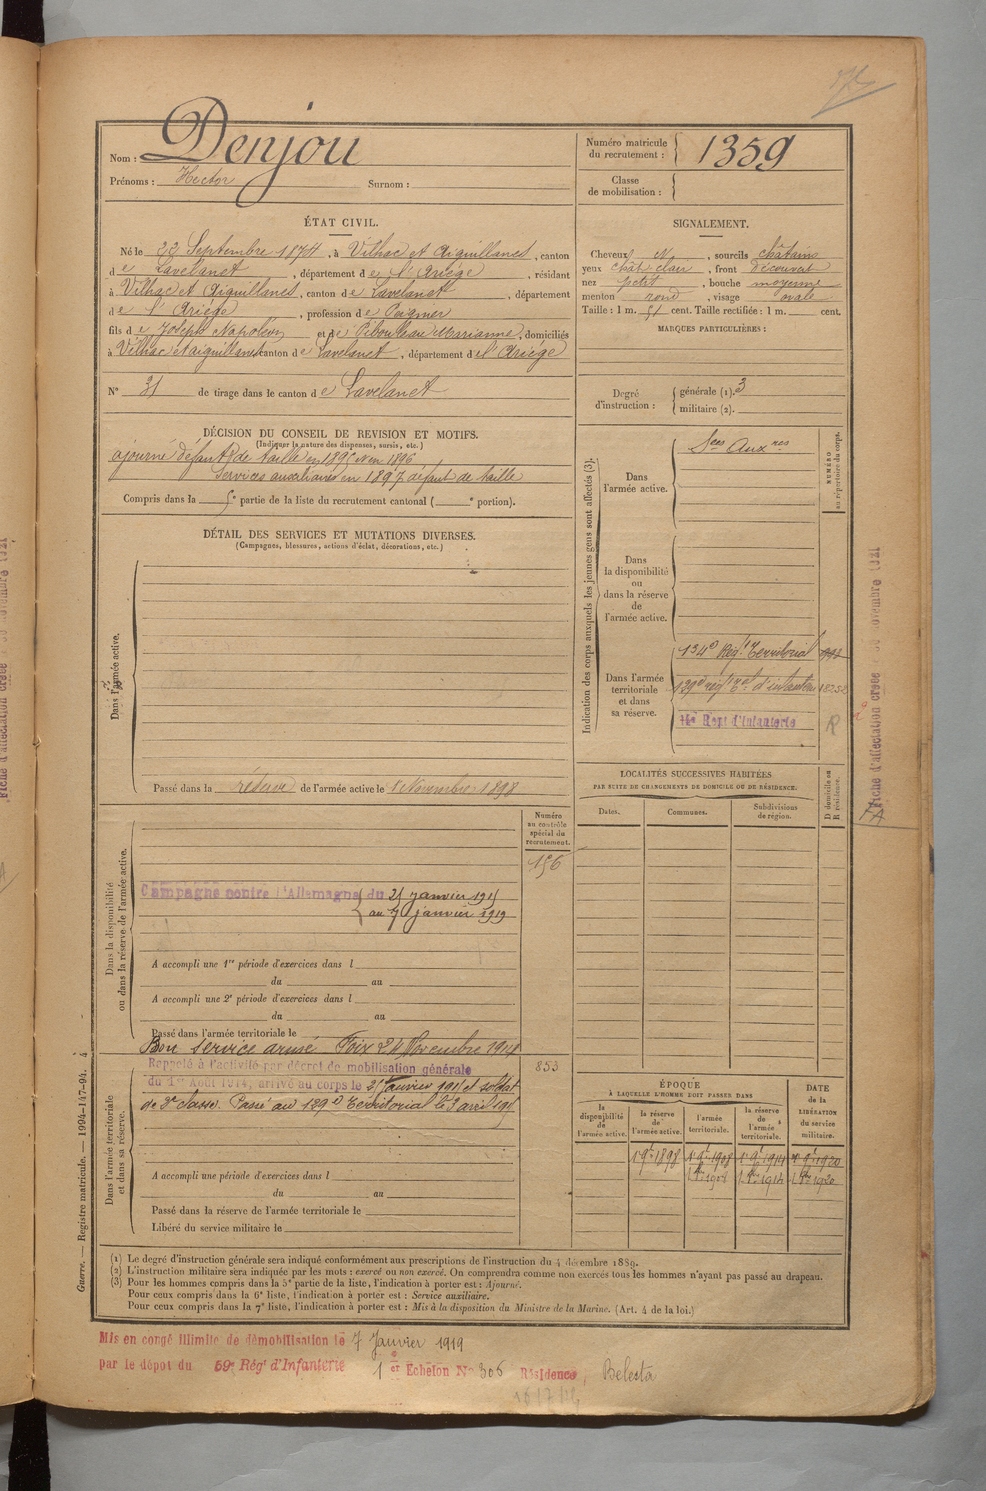 Nom : Denjou
Prénoms : Hector Surnom :
Numéro matricule du recrutement : 1359
Classe de mobilisation :
ÉTAT CIVIL.
Né le 22 Septembre 1874, à Vilhac et Aiguillanes, canton
de Lavelanet, département de l'Ariège, résidant
à Vilhac et Aiguillanes, canton de Lavelanet, département
de l'Ariège, profession de Peigneur
fils de Joseph Napoléon et de Pibouleau Marianne, domiciliés
à Vilhac et aiguillanes, canton de Lavelanet, département de l'Ariège
N° 31 de tirage dans le canton de Lavelanet
SIGNALEMENT.
Cheveux N, sourcils châtains
yeux chât clair, front découvert
nez petit, bouche moyenne
menton rond, visage ovale
Taille : 1 m. 51 cent. Taille rectifiée : 1 m. cent.
MARQUES PARTICULIÈRES :
Degré d'instruction : générale (1). 3
militaire (2).
DÉCISION DU CONSEIL DE REVISION ET MOTIFS.
(Indiquer la nature des dispenses, sursis, etc.)
ajourné défaut de taille en 1895 et en 1896
Services auxiliaires en 1897 défaut de taille
Compris dans la 5e partie de la liste du recrutement cantonal ( e portion).
DÉTAIL DES SERVICES ET MUTATIONS DIVERSES.
(Campagnes, blessures, actions d'éclat, décorations, etc.)
Dans l'armée active.
Passé dans la réserve de l'armée active le 1er Novembre 1898
Indication des corps auxquels les jeunes gens sont affectés (3).
NUMÉRO au répertoire du corps.
Dans l'armée active.
Sces Auxres
Dans la disponibilité ou dans la réserve de l'armée active.
Dans l'armée territoriale et dans sa réserve.
134e Régt Territorial
129e régt tal d'infanterie
Regt d'Infanterie
R
LOCALITÉS SUCCESSIVES HABITÉES
PAR SUITE DE CHANGEMENTS DE DOMICILE OU DE RÉSIDENCE.
Dates. Communes. Subdivisions de région.
D domicile ou R résidence.
Dans la disponibilité ou dans la réserve de l'armée active.
Numéro au contrôle spécial du recrutement.
156
Campagne contre l'Allemagne du 25 janvier 1915
au 7 janvier 1919
A accompli une 1re période d'exercices dans l
du au
A accompli une 2e période d'exercices dans l
du au
Passé dans l'armée territoriale le
Bon service armé Foix 24 Novembre 1914
Dans l'armée territoriale et dans sa réserve.
853
Rappelé à l'activité par décret de mobilisation générale
du 1er Août 1914, arrivé au corps le 25 Janvier 1915 et soldat
de 2e classe. Passé au 129e Territorial le 3 avril 1915
A accompli une période d'exercices dans l
du au
Passé dans la réserve de l'armée territoriale le
Libéré du service militaire le
ÉPOQUE
À LAQUELLE L'HOMME DOIT PASSER DANS
la disponibilité de l'armée active. la réserve de l'armée active. l'armée territoriale. la réserve de l'armée territoriale.
DATE de la LIBÉRATION du service militaire.
1er 9bre 1898 1er 9bre 1908 1er 9bre 1914 1er 9bre 1920
1er 8bre 1908 1er 8bre 1914 1er 8bre 1920
(1) Le degré d'instruction générale sera indiqué conformément aux prescriptions de l'instruction du 4 décembre 1889.
(2) L'instruction militaire sera indiquée par les mots : exercé ou non exercé. On comprendra comme non exercés tous les hommes n'ayant pas passé au drapeau.
(3) Pour les hommes compris dans la 5e partie de la liste, l'indication à porter est : Ajourné.
Pour ceux compris dans la 6e liste, l'indication à porter est : Service auxiliaire.
Pour ceux compris dans la 7e liste, l'indication à porter est : Mis à la disposition du Ministre de la Marine. (Art. 4 de la loi.)
Guerre. — Registre matricule. — 1994-147-94. 4
Mis en congé illimité de démobilisation le 7 Janvier 1919
par le dépot du 59e Régt d'Infanterie 1er Echelon N° 306 Résidence, Belesta
Fiche d'affectation créée novembre 1921